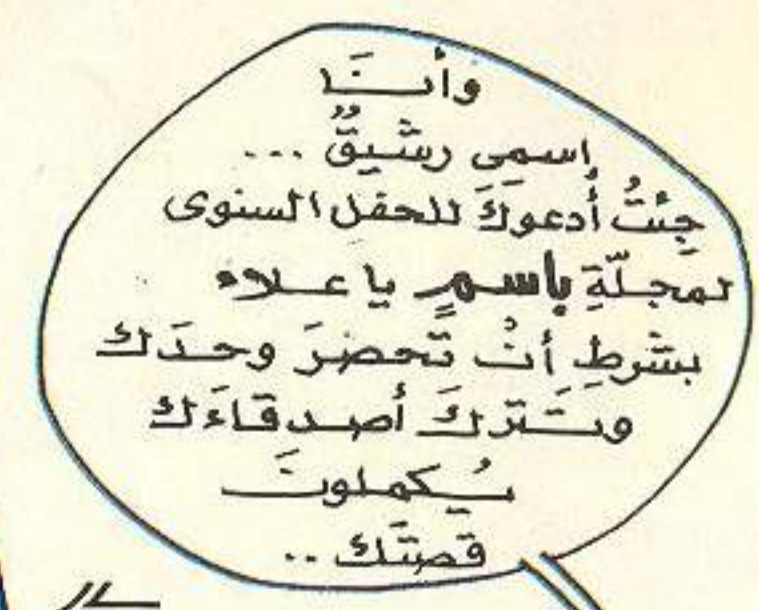 وأنَا
اسمى رشيقٌ ...
جِئتُ أُدعوَكَ للحفل السنوى
لمجلّةِ باسمٍ يا علاء
بشرطِ أنْ تَحضرَ وحدَك
وتَتركَ أصدقاءَك
يُكملونَ
قصتَك ..